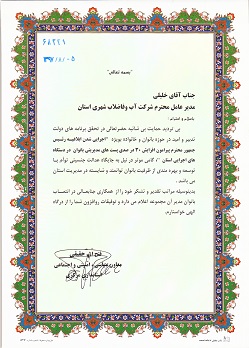 ۶۸۲۲۱
۳۹۷/۸/۰۵
"بسمه تعالی"
جناب آقای خلیلی
مدیر عامل محترم شرکت آب وفاضلاب شهری استان
باسلام و احترام؛
بی تردید حمایت بی شائبه حضرتعالی در تحقق برنامه های دولت
تدبیر و امید در حوزه بانوان و خانواده بویژه "اجرایی شدن ابلاغیه رئیس
جمهور محترم پیرامون افزایش ۳۰ درصدی پست های مدیریتی بانوان در دستگاه
های اجرایی استان" گامی موثر در نیل به جایگاه عدالت جنسیتی توأم با
توسعه و بهره مندی از ظرفیت بانوان توانمند و شایسته در مدیریت استان
می باشد.
بدینوسیله مراتب تقدیر و تشکر خود را از همکاری جنابعالی در انتصاب
بانوان مدیر آن مجموعه اعلام می دارد و توفیقات روزافزون شما را از درگاه
الهی خواستارم.
حقیقی
معاون سیاسی، امنیتی و اجتماعی
استانداری مرکزی